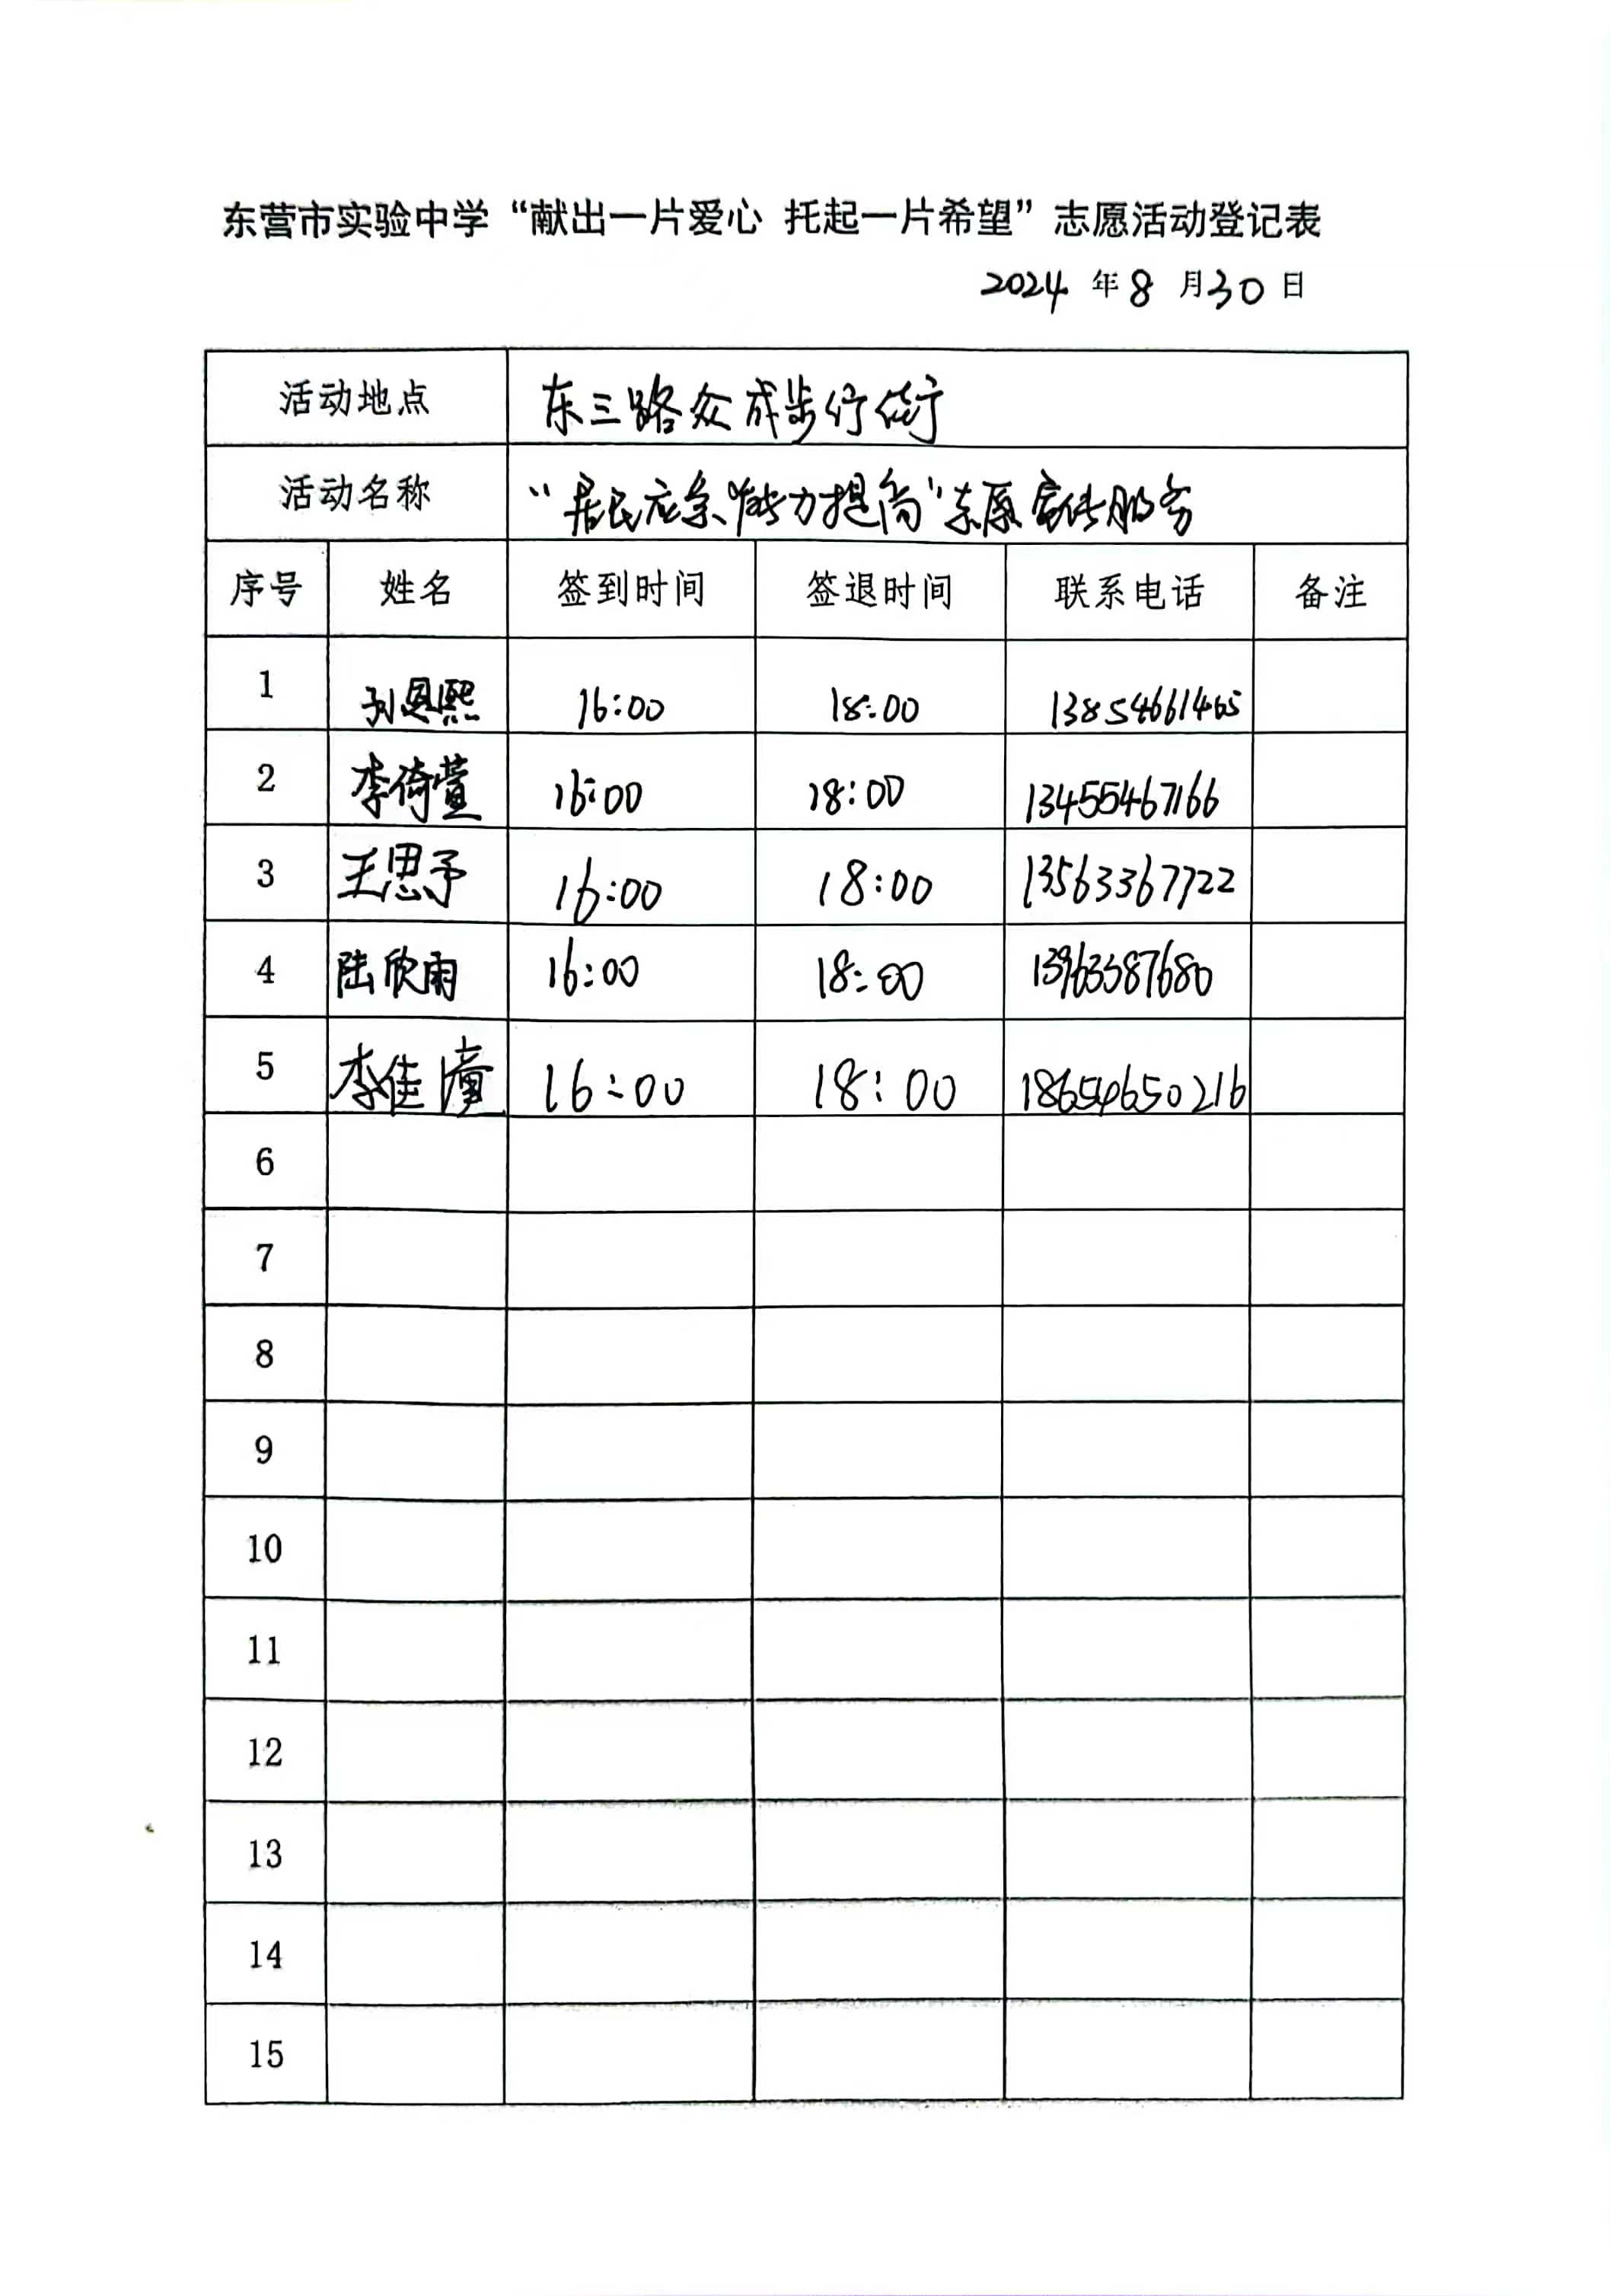 东营市实验中学“献出一片爱心 托起一片希望”志愿活动登记表
2024 年 8 月 30 日
活动地点 东三路众成步行街
活动名称 “居民应急能力提高” 宣传服务
序号 姓名 签到时间 签退时间 联系电话 备注
1 孙恩熙 16:00 18:00 13854661465
2 李倚萱 16:00 18:00 13455467166
3 王思予 16:00 18:00 13563367722
4 陆欣雨 16:00 18:00 13963387680
5 李佳潼 16:00 18:00 18654650216
6
7
8
9
10
11
12
13
14
15